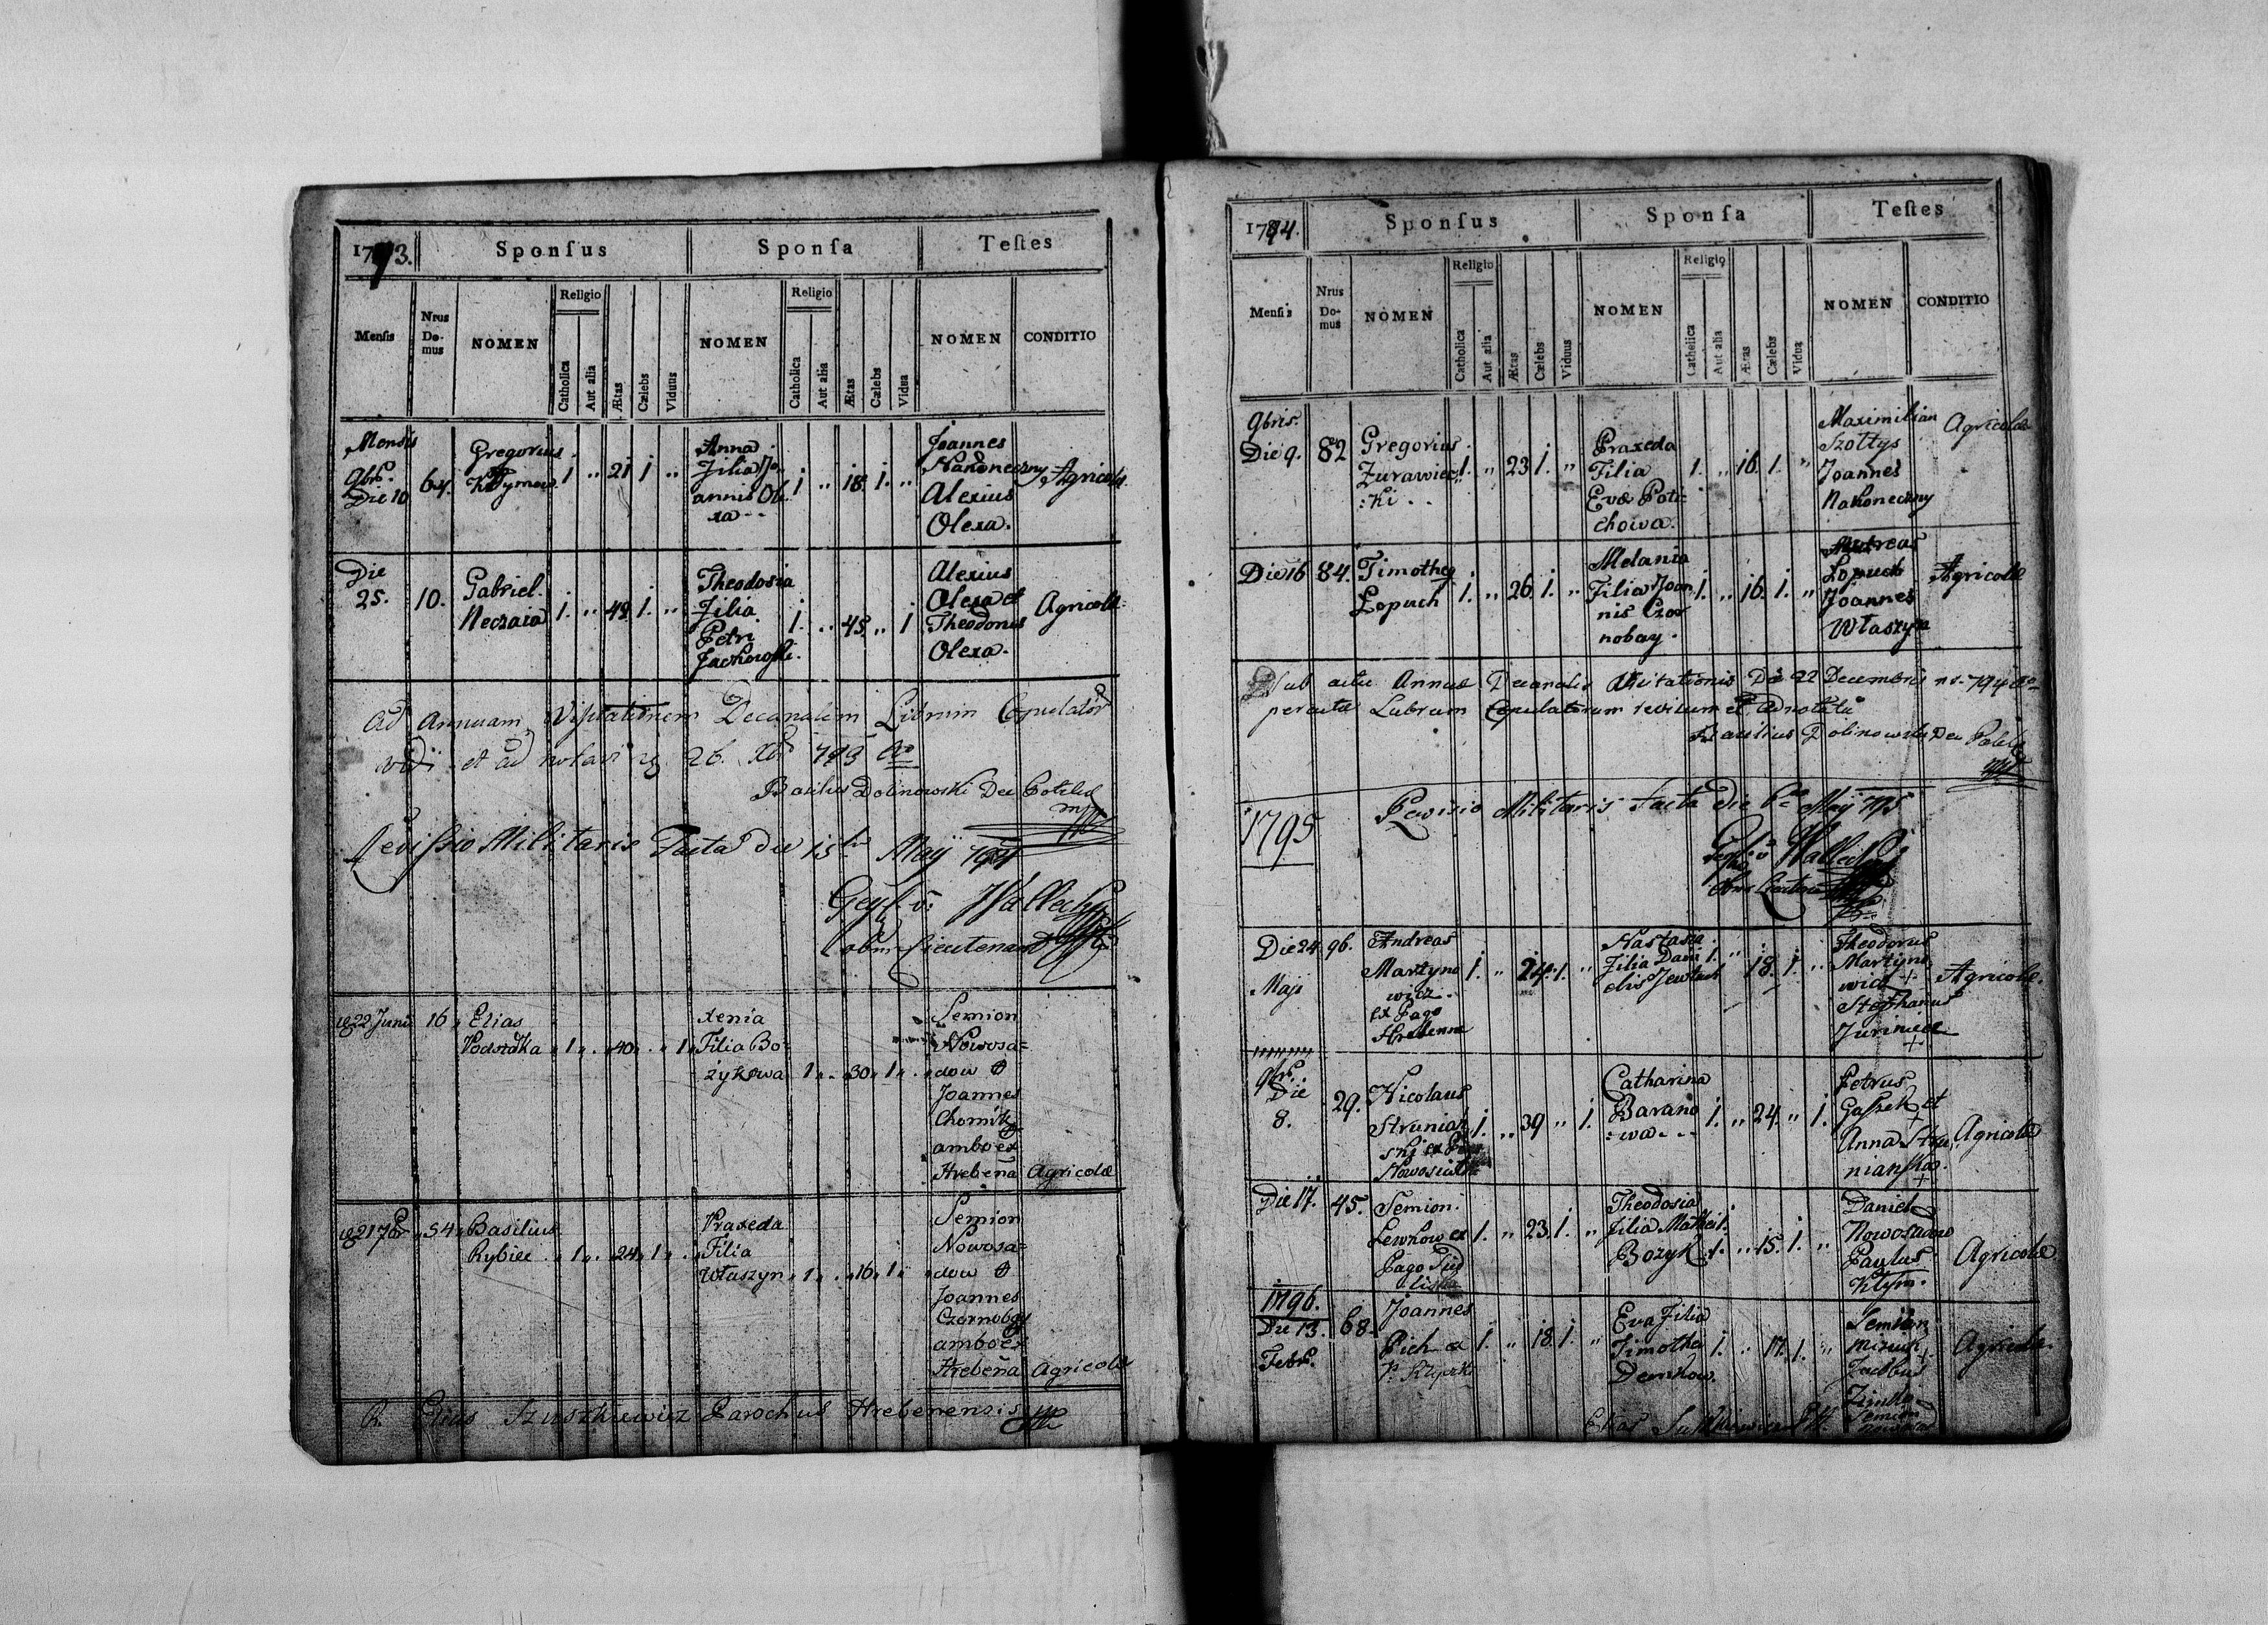 1793.
Sponſus
Sponſa
Teſtes
Menſis
Nrus Do-mus
NOMEN
Religio
Catholica
Aut alia
Ætas
Cælebs
Viduus
NOMEN
Religio
Catholica
Aut alia
Ætas
Cælebs
Vidua
NOMEN
CONDITIO
Mensis
9br.
Die 10
64.
Gregorius
Klymow
1 " 21 1 "
Anna
Filia Jo
annis Ole
xa
1 " 18. 1. "
Joannes
Nakoneczny
Alexius
Olexa.
Agricolæ
Die
25.
10.
Gabriel
Neczaia
1. " 49. 1. "
Theodosia
Filia
Petri
1. " 45 " 1
Alexius
Olexa et
Theodorus
Olexa.
Agricolæ
Ad Annuam Visitationem Decanalem Librum Copulator
vidi et ad notavi 26. Xbr 793 Ao
Basilius Dolinowski Dec
Revissio Militaris Facta die 15 Maij 794
Lieutenant
22 Junii
16
Elias
1 " 40 " 1
Xenia
Filia Bo=
zykowa
1 " 30 " 1
Semion
Nowosa=
dow
Joannes
Chomik
ambo ex
Hrebeña
Agricolæ
21 7br
54
Basilius
Rybiec
1 " 24 " 1
Praxeda
Filia
Właszyn
1 " 16 " 1
Semion
Nowosa=
dow
Joannes
Czornobay
ambo ex
Hrebeña
Agricolæ
Elias Szuszkiewicz Parochus Hrebenensis
1794.
Sponſus
Sponſa
Teſtes
Menſis
Nrus Do-mus
NOMEN
Religio
Catholica
Aut alia
Ætas
Cælebs
Viduus
NOMEN
Religio
Catholica
Aut alia
Ætas
Cælebs
Vidua
NOMEN
CONDITIO
9bris.
Die 9.
82
Gregorius
Zurawiec
:ki
1. " 23 1. "
Praxeda
Filia
Evæ Poti=
chowa.
1. " 16. 1. "
Maximilian
Szołtys
Joannes
Nakoneczny
Agricolæ
Die 16
84.
Timotheg
Lopuch
1. " 26. 1. "
Melania
Filia Joan
nis Czor
nobay.
1. " 16. 1. "
Andreas
Lopuch
Joannes
Właszyn
Agricolæ
Sub actu Annuæ Decanalis Visitationis Die 22 Decembris 794
Librum Copulatorum revisum et adnotatu
Basilius Dolinowski Dec
1795
Revisio Militaris Facta Die 6 Maij 795
Die 24
Maji
96.
Andreas
Martyno
wicz.
ex Pago
Hrebenne
1. " 24. 1. "
Nastasia
Filia Dani
elis Jewtuch
1. " 18. 1. "
Theodorus
Martyno
wicz +
Stephanus
+
Agricolæ.
9br.
Die
8.
29.
Nicolaus
Strunian
ski ex
1. " 39 " 1.
Catharina
Barano
:wa
1. " 24. " 1.
Petrus
Gaszek et
+
Anna Stru
nianska.
+
Agricolæ
Die 17.
45.
Semion
Lewkow ex
Pago
1. " 23. 1. "
Theodosia
Filia Mathei
Bozyk
1. " 15. 1. "
Daniel
Nowosadow
Paulus
Kłym.
Agricolæ
1796.
Die 13.
Febr.
68
Joannes
Pich ex
1. " 18 1. "
Eva Filia
Timothei
Demkow
1. " 17. 1. "
Semion
Jacobus
Semion
Agricolæ
Elias